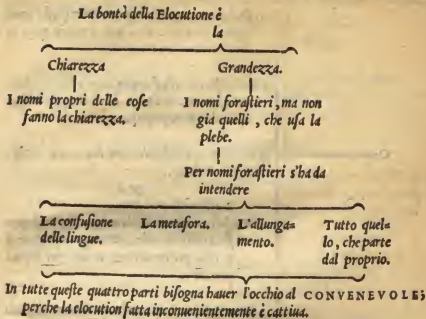 La bontà della Elocutione è
la
Chiarezza
Grandezza.
I nomi propri delle cose
fanno la chiarezza.
I nomi foraſtieri, ma non
gia quelli, che uſa la
plebe.
Per nomi foraſtieri s'ha da
intendere
La confuſione
delle lingue.
La metafora.
L'allunga=
mento.
Tutto quel=
lo, che parte
dal proprio.
In tutte queſte quattro parti biſogna hauer l'occhio al CONVENEVOLE;
perche la elocution fatta inconuenientemente è cattiua.